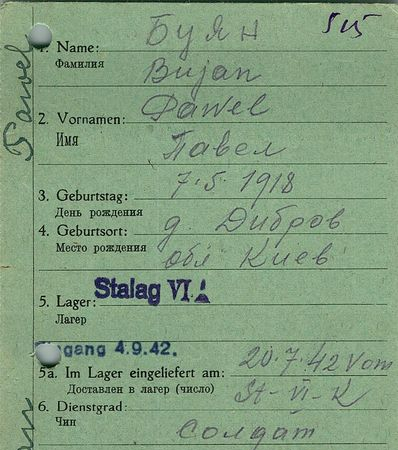 515
БУЯН
1. Name:
Фамилия
Bujan
Pawel
2. Vornamen:
Имя
Павел
3. Geburtstag: 7.5.1918
День рождения
4. Geburtsort: д. Дибров
Место рождения
обл Киев
5. Lager: Stalag VI A
Лагер
Eingang 4.9.42.
5a. Im Lager eingeliefert am: 20.7.42 vom
Доставлен в лагер (число)
St-VI-K
6. Dienstgrad:
Чин
солдат
Pawel